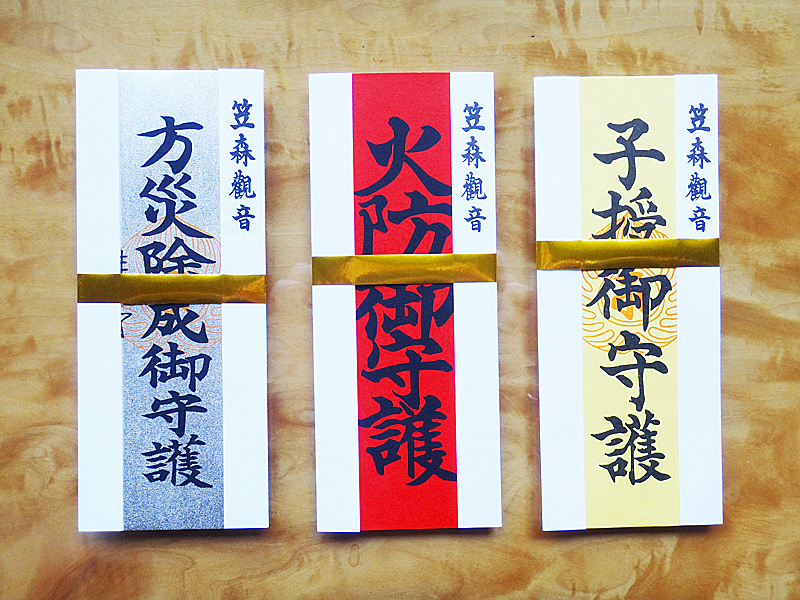 笠森觀音
方災除成御守護
笠森觀音
火防御守護
笠森觀音
子授御守護